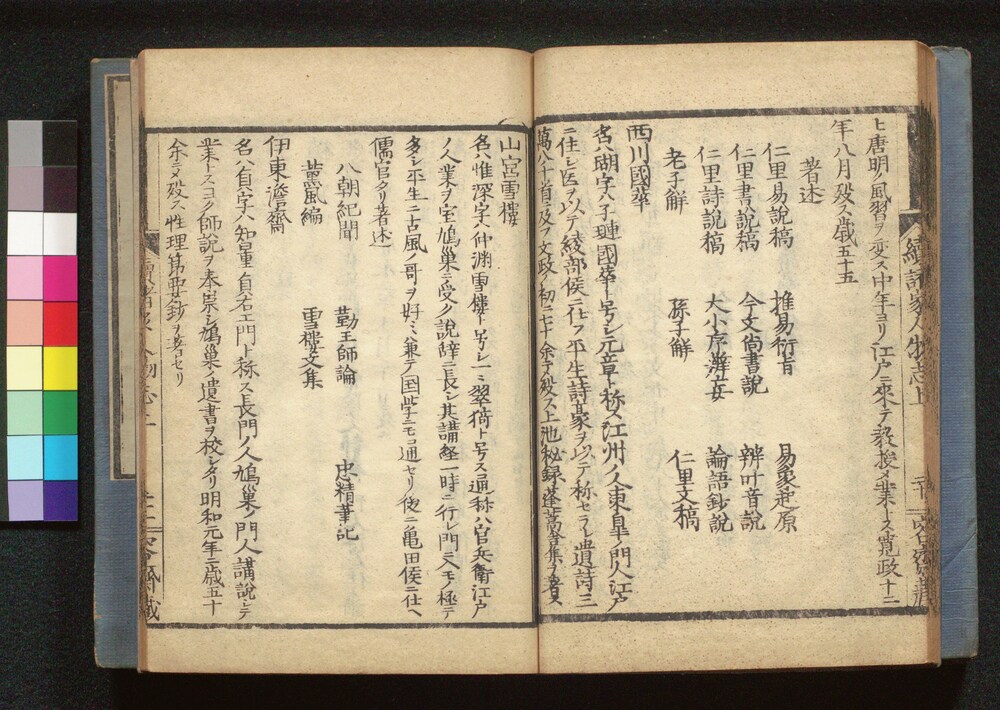 ヒ唐明ノ風習ヲ変ス中年ヨリ江戸ニ來テ教授ヲ業トス寛政十二
年八月殁ス歳五十五
著述
仁里易說稿 推易衍旨 易象起原
仁里書說稿 今文尚書說 辨叶音說
仁里詩說稿 大小序辨妄 論語鈔說
老子解 孫子解 仁里文稿
西川國華
名ハ瑚字ハ子璉國華ト号シ元章ト称ス江州ノ人東皐ノ門人江戸
ニ住シ医ヲ以テ綾部侯ニ仕フ平生詩豪ヲ以テ称セラレ遺詩三
萬八十首ニ及フ文政ノ初ニ七十余ニテ殁ス上池秘録蓬蒿舍集ヲ著ス
續諸家人物志上
山宮雪樓
名ハ惟深字ハ仲渊雪樓ト号シ一ニ翠猗ト号ス通称ハ官兵衛江戸
ノ人業ヲ室鳩巢ニ受ク說辞ニ長シ其講経一時ニ行レ門人モ極テ
多シ平生ニ古風ノ哥ヲ好ミ兼テ国学ニモ通セリ後ニ亀田侯ニ仕ヘ
儒官タリ著述
八朝紀聞 勤王師論 忠精筆記
薫風編 雪樓文集
伊東澹齋
名ハ貞字ハ知量貞右エ門ト称ス長門ノ人鳩巢ノ門人講說シテ
業トスヨク師說ヲ奉崇シ鳩巢ノ遺書ヲ校シタリ明和元年ニ歳五十
余ニメ殁ス性理筆要鈔ヲ著セリ